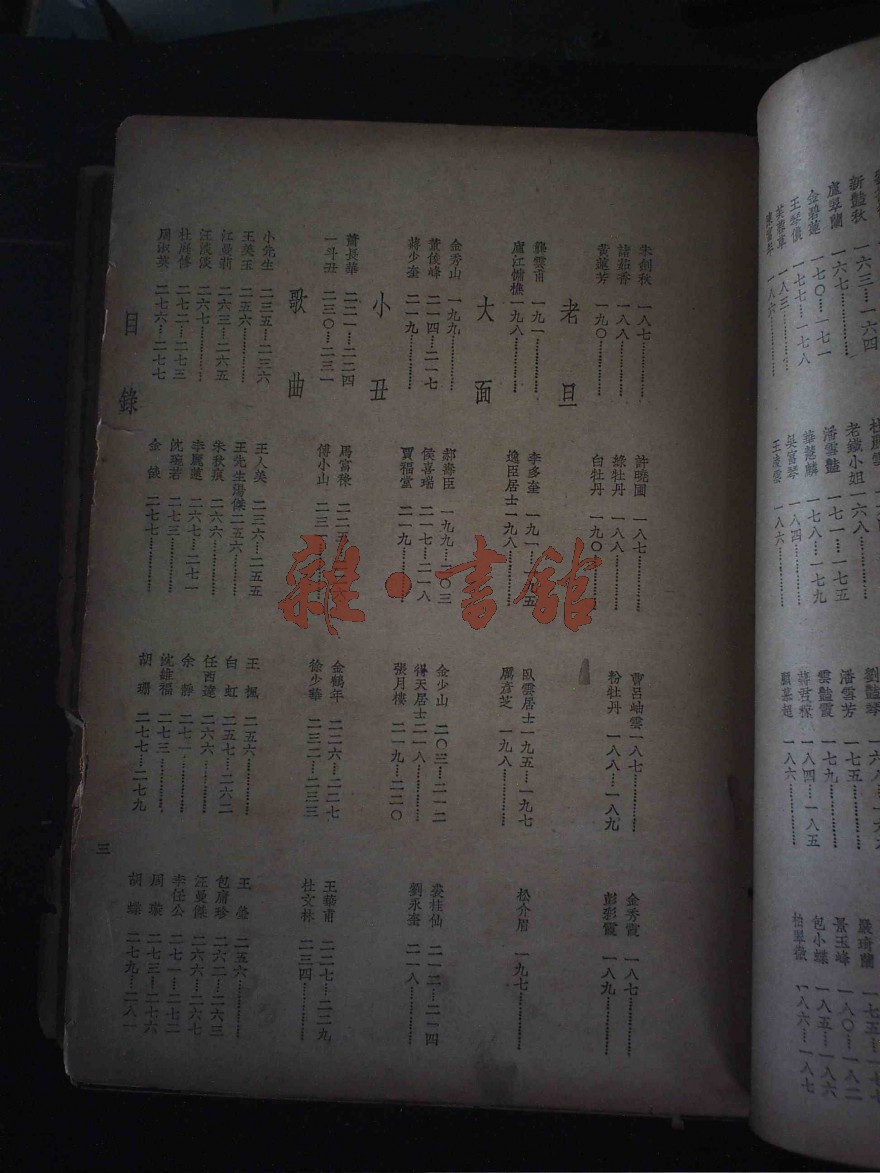 新豔秋 一六三…一六四
盧翠蘭 一六七………… 老鐵小姐 一六八………… 劉豔琴
金碧蓮 一七〇…一七一 潘雪豔 一七一…一七五 潘雪芳 一七五………… 一七五…一七七
王琴儂 一七七…一七八 華慧麟 一七八…一七九 雲豔霞 一七九………… 景玉峰 一八〇…一八二
芙蓉草 一八三………… 吳富琴 一八四………… 蔣君稼 一八四…一八五 包小蝶 一八五…一八六
一八六………… 王凌雲 一八六………… 顧慕超 一八六………… 柏翠薇 一八六…一八七
朱劍秋 一八七………… 許曉圃 一八七………… 曹呂岫雲 一八七………… 金秀霞 一八七…………
諸茹香 一八八………… 綠牡丹 一八八………… 粉牡丹 一八八…一八九 彭彩霞 一八九…………
黃蓮芳 一九〇………… 白牡丹 一九〇…………
老旦
龔雲甫 一九一………… 李多奎 一九一…一九五 臥雲居士 一九五…一九七 松介眉 一九七…………
盧江樵 一九八………… 逸臣居士 一九八………… 厲彥芝 一九八…………
大面
金秀山 一九九………… 郝壽臣 一九九…二〇三 金少山 二〇三…二一二 裘桂仙 二一二…二一四
董俊峰 二一四…二一七 侯喜瑞 二一七…二一八 得天居士 二一八………… 劉永奎 二一八…………
蔣少奎 二一九………… 賈福堂 二一九………… 張月樓 二一九…二二〇
小丑
蕭長華 二二一…二二四 馬富祿 二二五…二二六 金鶴年 二二六…二二七 王華甫 二二七…二二九
一斗丑 二三〇…二三一 傅小山 二三 徐少華 二三二…二三三 杜文林 二三四…………
歌曲
小先生 二三五…二三六 王人美 二三六…二五五 王楓 二五六………… 王 二五六…………
王美玉 二五六………… 王先生湯傑 二五六………… 白虹 二五七…二六二 包庸珍 二六二…二六三
江曼莉 二六三…二六五 朱秋痕 二六六………… 任西達 二六六………… 汪曼傑 二六六…二六七
汪淡淡 二六七………… 李麗蓮 二六七…二七一 余靜 二七一………… 李任公 二七一…二七二
杜履修 二七二…二七三 沈琬若 二七三………… 沈維福 二七三………… 周璇 二七三…二七六
周淑英 二七六…二七七 金俠 二七七………… 胡珊 二七七…二七九 胡蝶 二七九…二八一
目錄
三
雜·書館